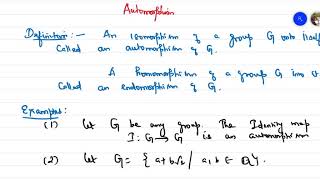 Automorphism
Definition :- An isomorphism of a group G onto itself
Called an automorphism of G.
A Homomorphism of a group G into it
Called an endomorphism of G.
Examples:
(1) Let G be any group. The Identity map
I: G → G is an automorphism
(2) Let G = { a+b√2 / a, b ∈ Q }.